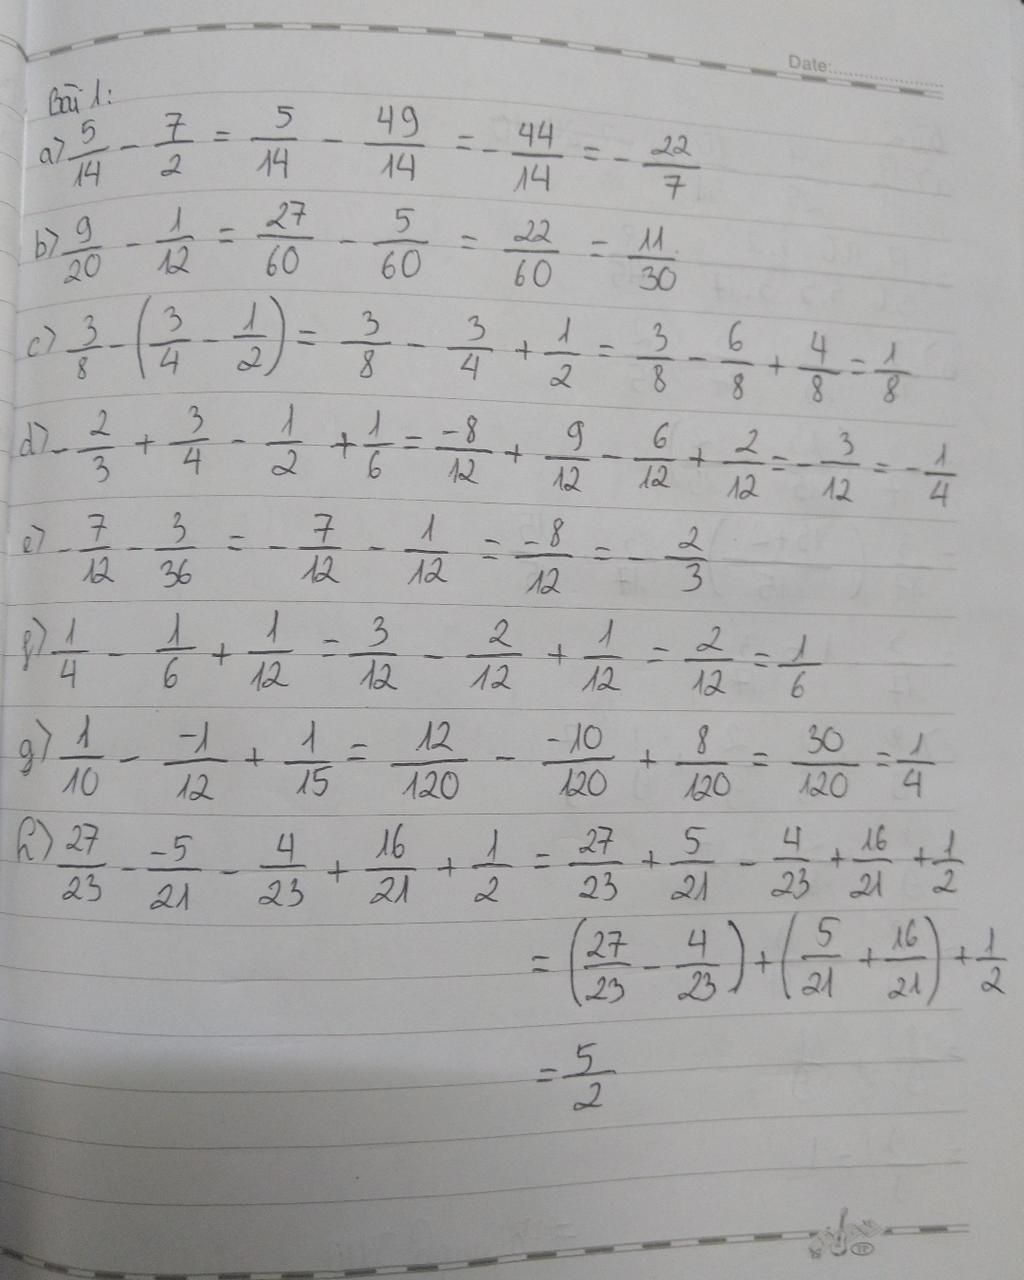 Date:
Bài 1:
a) 5/14 - 7/2 = 5/14 - 49/14 = - 44/14 = - 22/7
b) 9/20 - 1/12 = 27/60 - 5/60 = 22/60 = 11/30
c) 3/8 - (3/4 - 1/2) = 3/8 - 3/4 + 1/2 = 3/8 - 6/8 + 4/8 = 1/8
d) - 2/3 + 3/4 - 1/2 + 1/6 = -8/12 + 9/12 - 6/12 + 2/12 = - 3/12 = - 1/4
e) - 7/12 - 3/36 = - 7/12 - 1/12 = -8/12 = - 2/3
f) 1/4 - 1/6 + 1/12 = 3/12 - 2/12 + 1/12 = 2/12 = 1/6
g) 1/10 - -1/12 + 1/15 = 12/120 - -10/120 + 8/120 = 30/120 = 1/4
h) 27/23 - -5/21 - 4/23 + 16/21 + 1/2 = 27/23 + 5/21 - 4/23 + 16/21 + 1/2
= (27/23 - 4/23) + (5/21 + 16/21) + 1/2
= 5/2